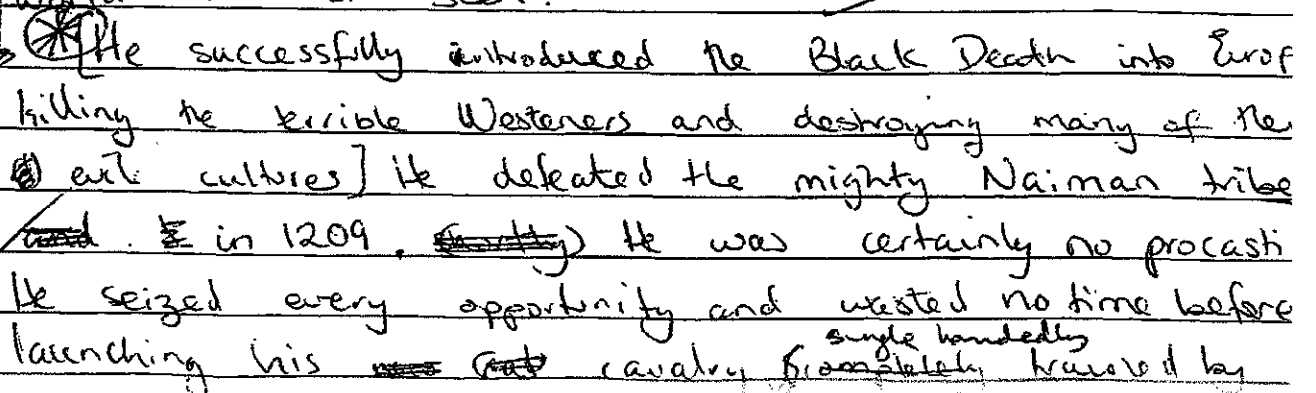 He successfully introduced the Black Death into Europ
killing the terrible Westeners and destroying many of the
evil cultures] He defeated the mighty Naiman tribe
in 1209. He was certainly no procasti
He seized every opportunity and wasted no time before
single handedly
launching his cavalry by